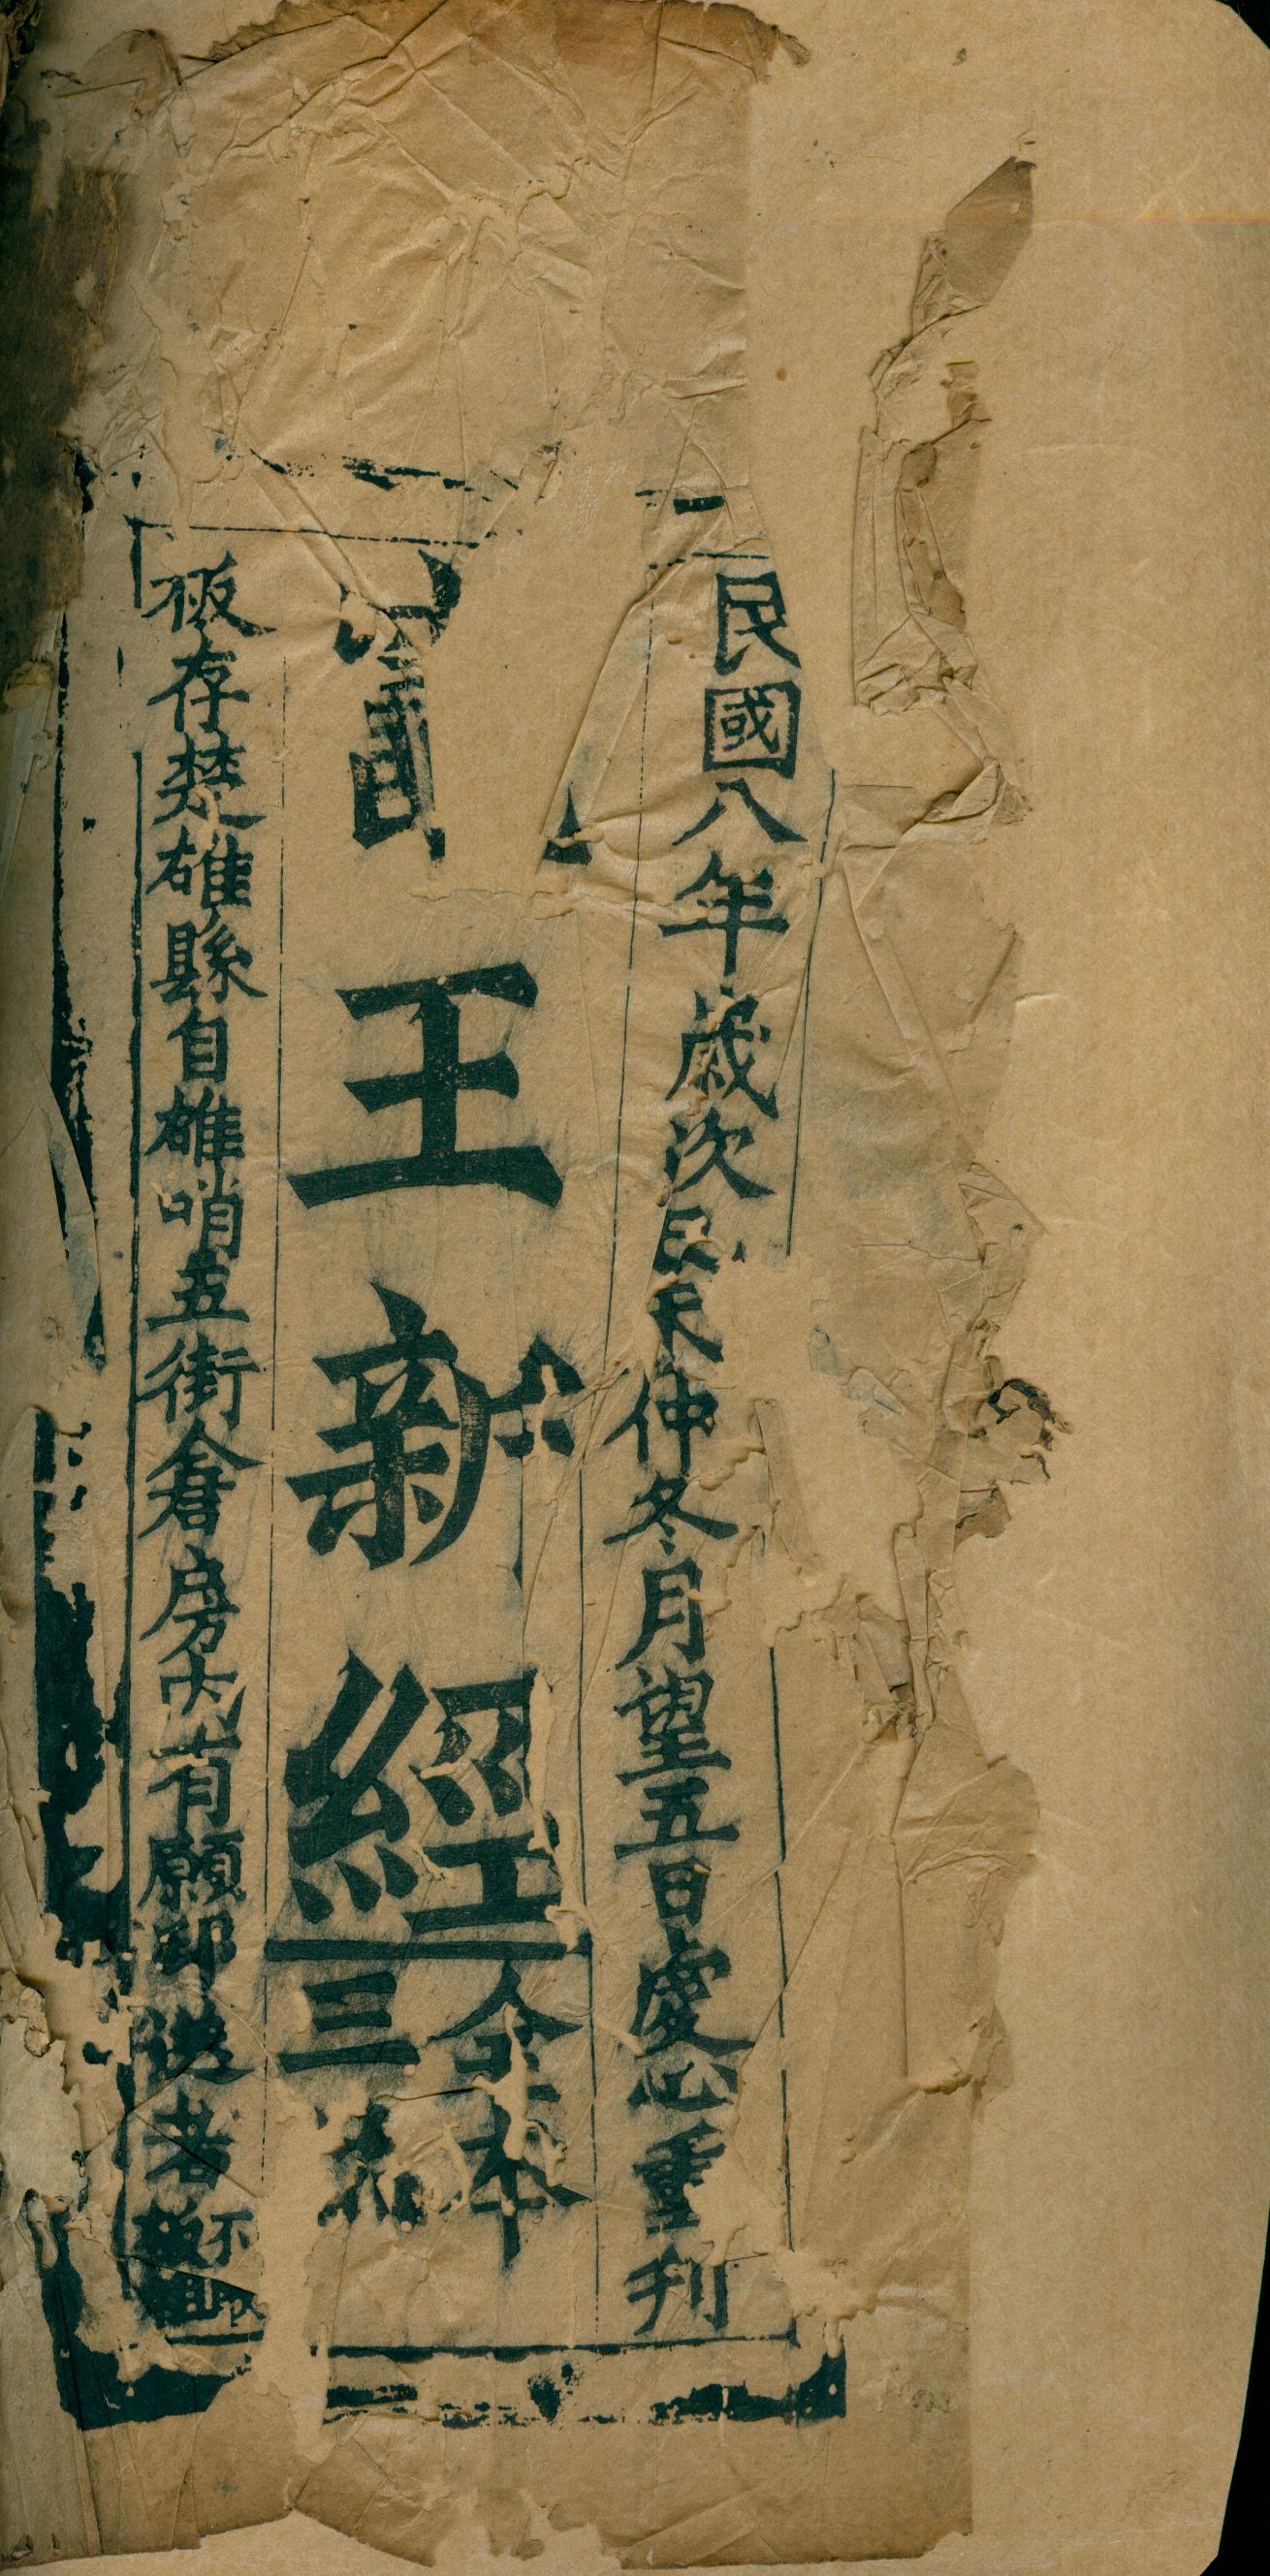 民國八年歲次己未仲冬月望五日慶心重刊
王新經
全本
三
板存楚雄縣自雄哨五街倉房內有願印送者